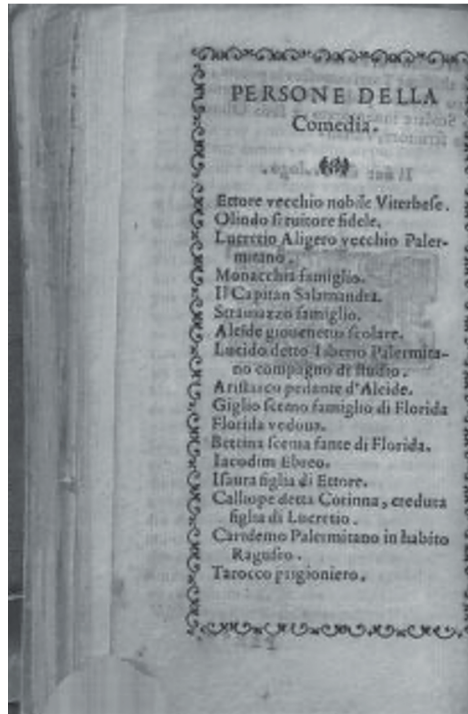 PERSONE DELLA
Comedia.
Ettore vecchio nobile Viterbese.
Olindo seruitore fidele.
Lucretio Aligero vecchio Paler-
mitano.
Monacchia famiglio.
Il Capitan Salamandra.
Stramazzo famiglio.
Alcide giouenetto scolare.
Lucido detto Liberio Palermita-
no compagno di studio.
Aristarco pedante d'Alcide.
Giglio scemo famiglio di Florida
Florida vedoua.
Bettina scema fante di Florida.
Iacodim Ebreo.
Isaura figlia di Ettore.
Calliope detta Corinna, creduta
figlia di Lucretio.
Caridemo Palermitano in habito
Raguseo.
Tarocco prigioniero.